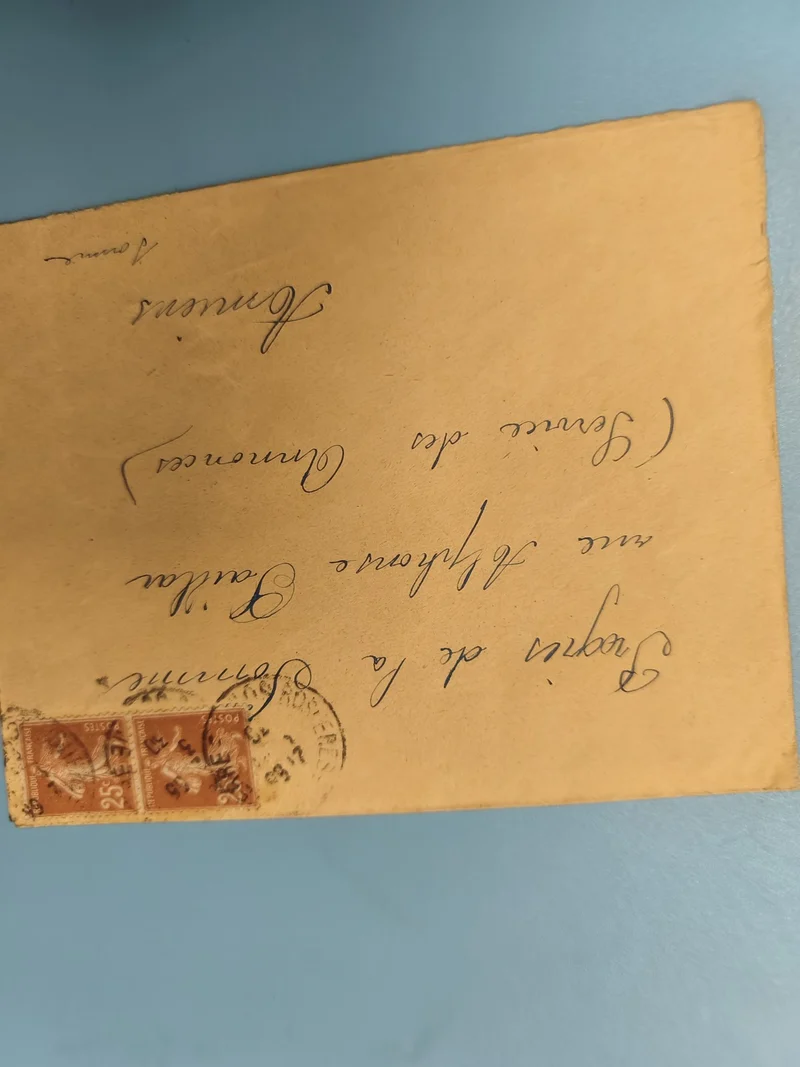 Progrès de la Somme
rue Alphonse Paillat
(Service des Annonces)
Amiens
Somme
POSTES
25c
RÉPUBLIQUE FRANÇAISE
POSTES
RÉPUBLIQUE FRANÇAISE
ROSIERES